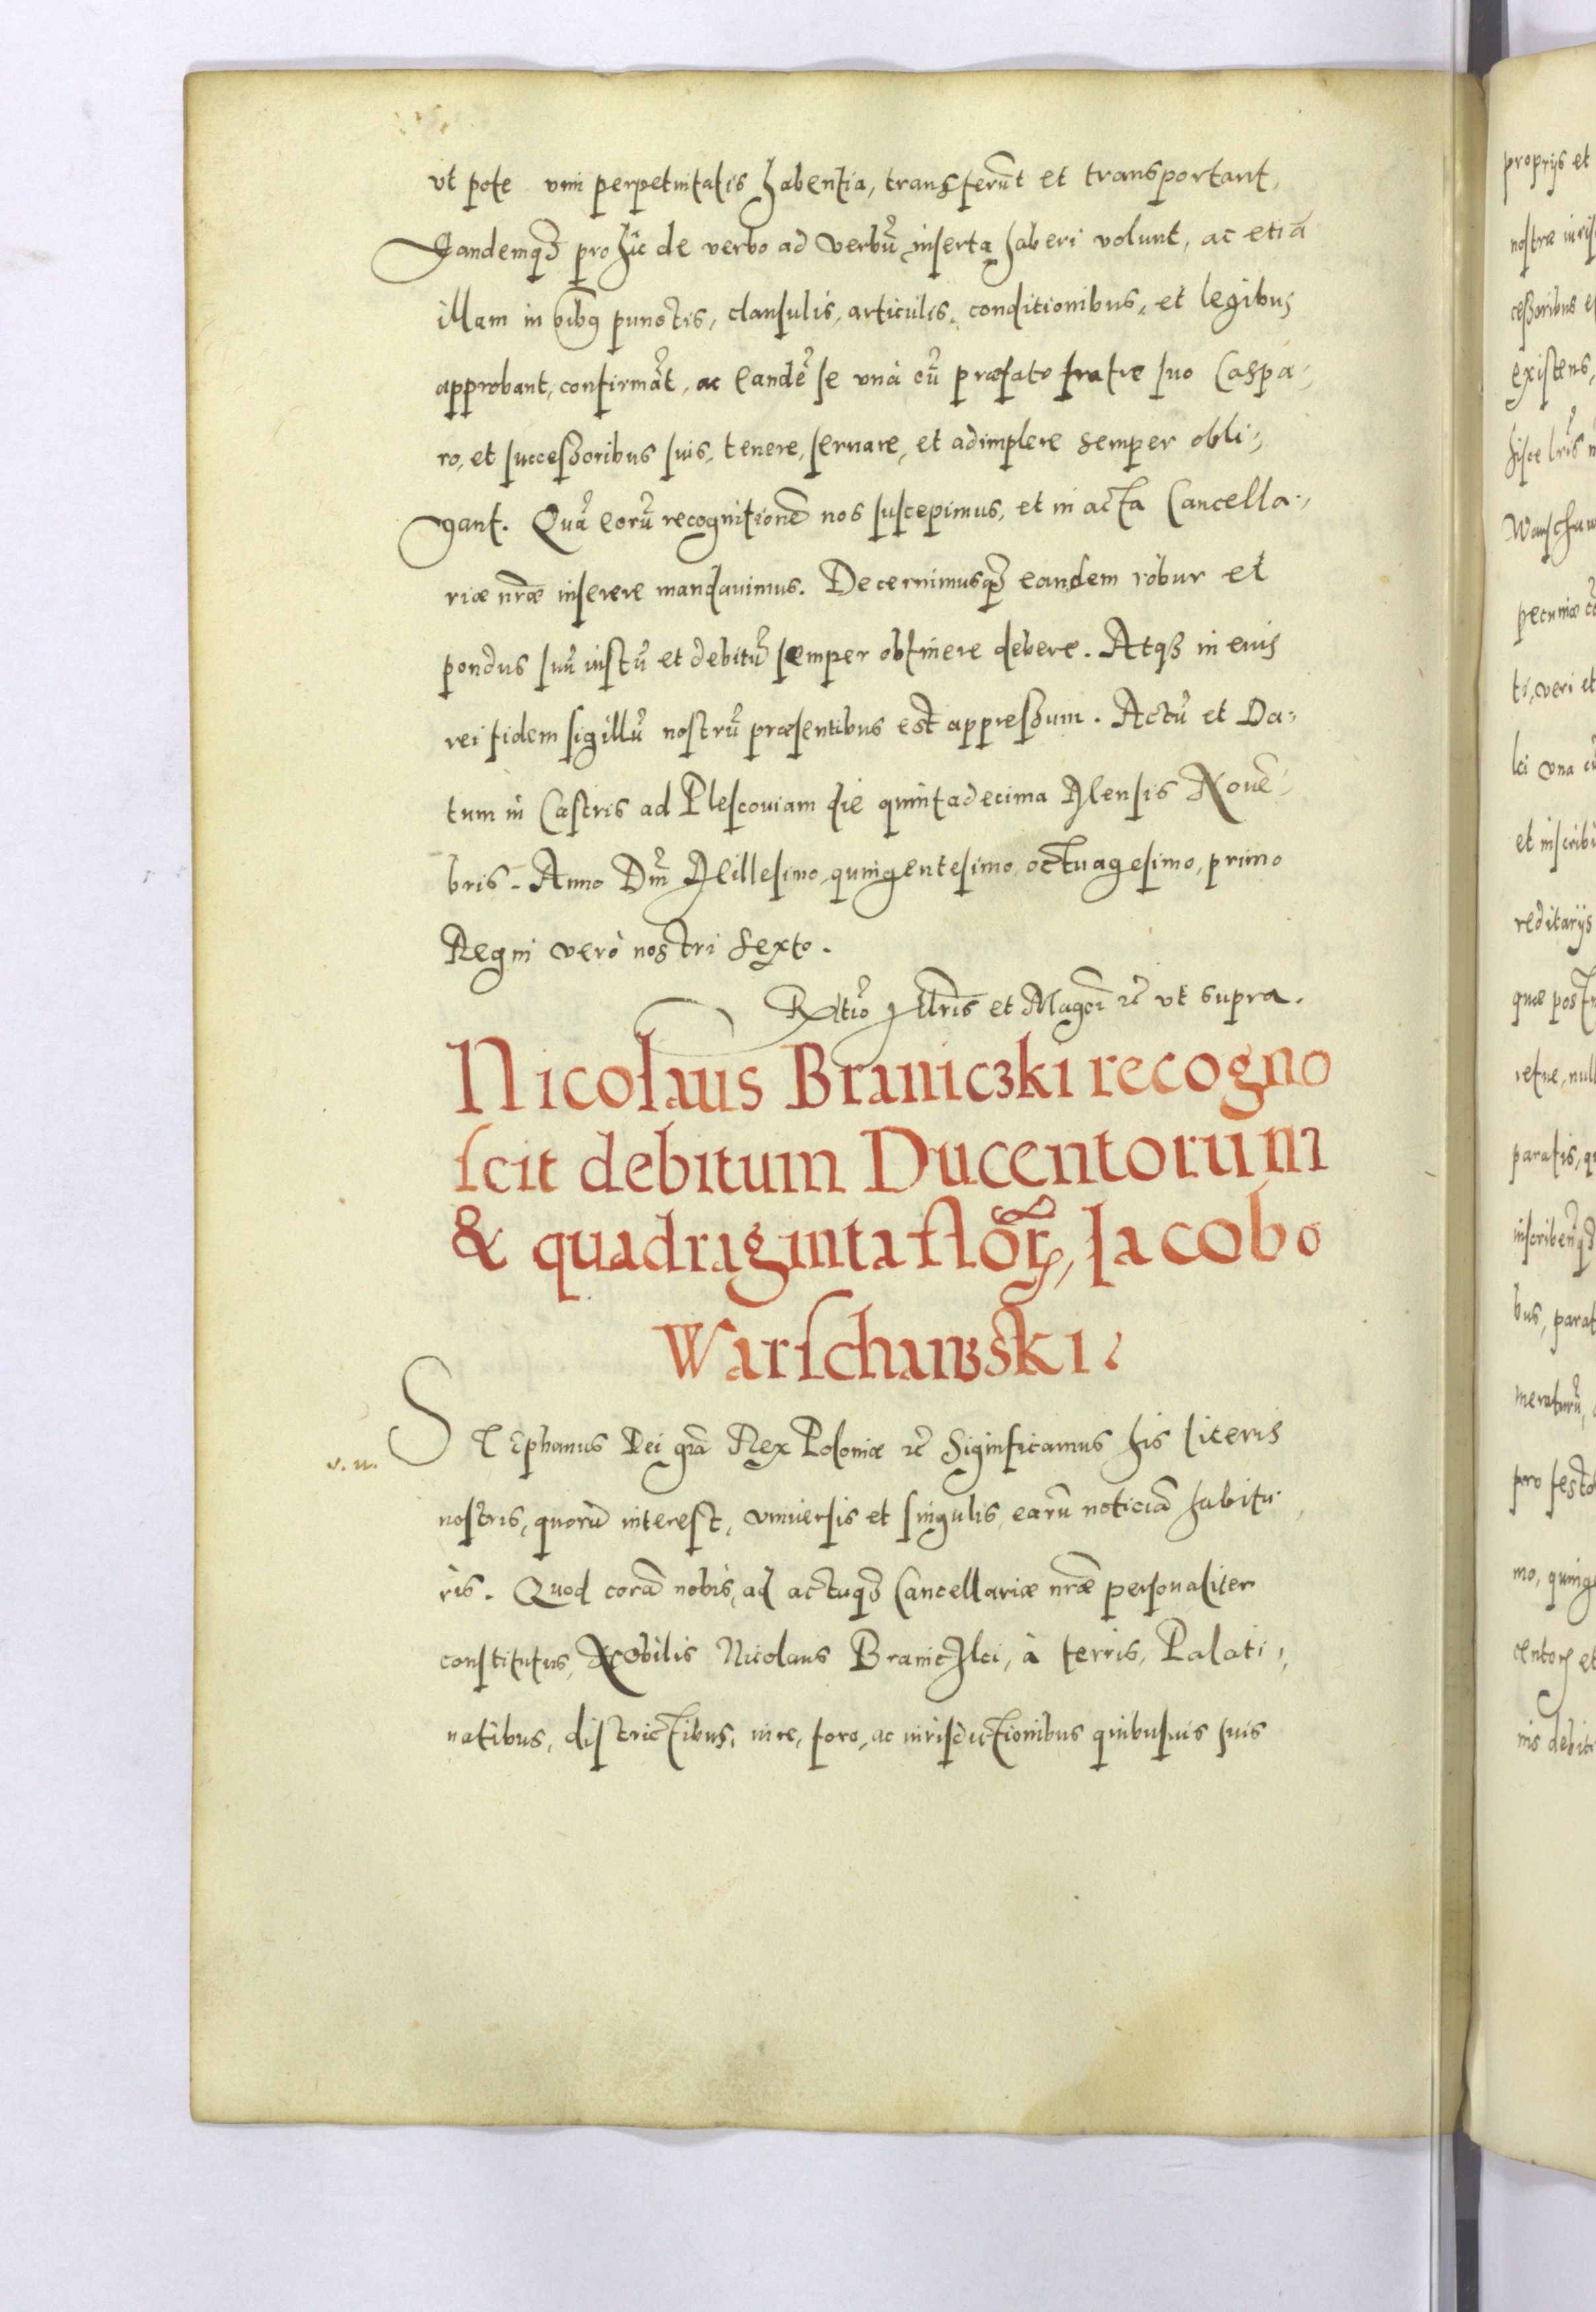 vt pote vim perpetuitatis habentia, transferūt et transportant,
Eandemqꝫ pro hic de verbo ad verbū inserta haberi volunt, ac etiā
illam in oībꝯ punctis, clausulis, articulis, conditionibus, et legibus
approbant, confirmāt, ac eandē se unà cū præfato fratre suo Caspa-
ro, et successoribus suis, tenere, seruare, et adimplere semper obli-
gant. Quā eorū recognitionē nos suscepimus, et in acta Cancella-
riæ nr̄æ inserere mandauimus. Decernimusqꝫ eandem robur et
pondus suū iustū et debitū semper obtinere debere. Atqꝫ in euis
rei fidem sigillū nostrū præsentibus est appressum. Actū et Da-
tum in Castris ad Plescouiam die quintadecima Mensis Nouē-
bris. Anno Dn̄i Millesimo, quingentesimo, octuagesimo, primo
Regni verò nostri Sexto.
R̄tio Illr̄is et Magci ꝛc̄ vt supra.
Nicolaus Braniczki recogno
scit debitum Ducentorum
& quadraginta florꝝ, Jacobo
Warschawski.
v. w.
STephanus Dei gr̄a Rex Poloniæ ꝛc̄ Significamus his literis
nostris, quorū interest, vniuersis et singulis, earū noticiā habitu
ris. Quod corā nobis, ad actuqꝫ Cancellariæ nr̄æ personaliter
constitutus, Nobilis Nicolaus Braniczki, à terris, Palati-
natibus, districtibus, iure, foro, ac iurisdictionibus quibusuis suis
proprijs et
nostræ iuris
cessoribus e
existens,
hisce lr̄is n
Warschaw
pecuniæ
ti, veri et
lci vna cū
et inscribi
reditarijs
quæ post
retue, null
paratis, q
inscribenꝯ
bus, parat
meraturū,
pro festo
mo, quinge
centorꝝ et
nis debiti